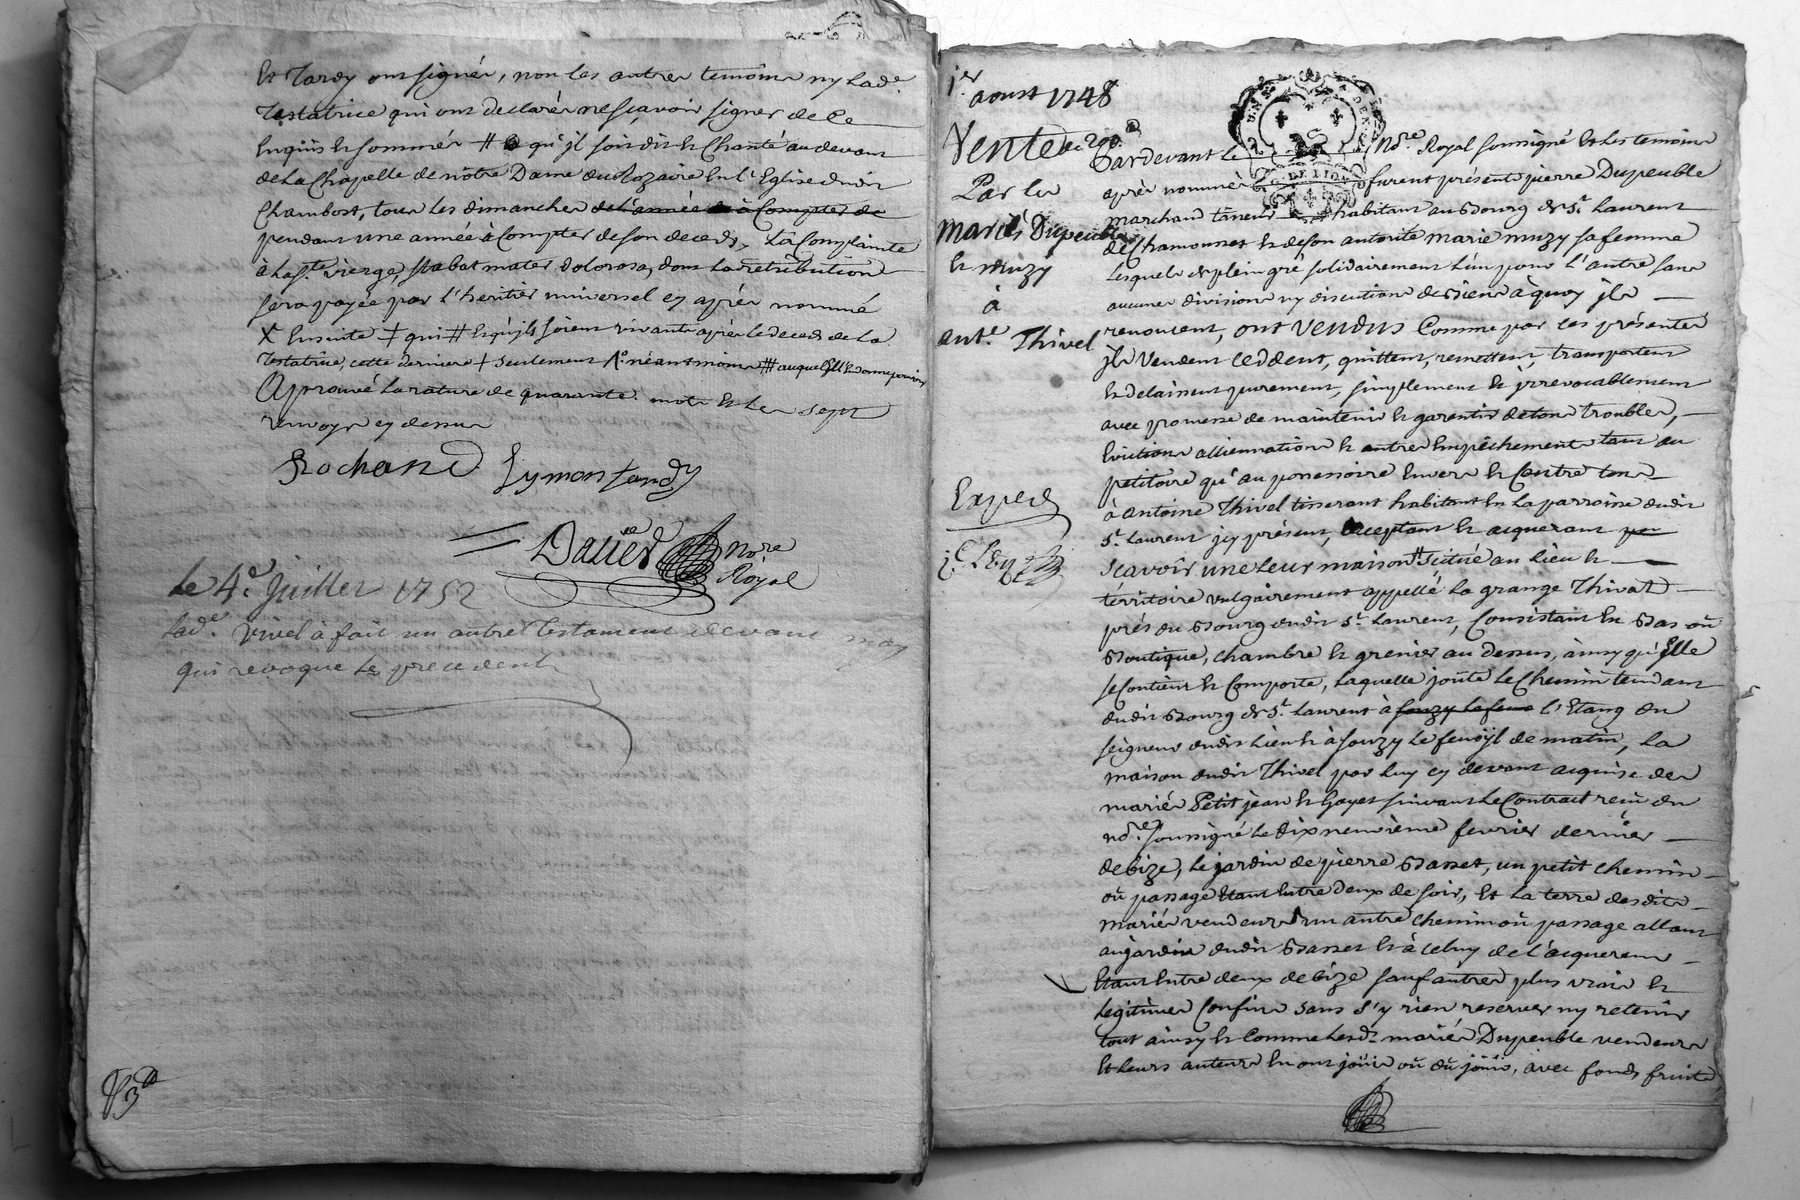 Et Tardy ont signé, non les autres temoins ny lad.e
testatrice qui ont declaré ne sçavoir signer de ce
enquis et sommés # qu'jl soit dit et chanté au devant
de la Chapelle de nôtre Dame du Rozaire en l'Eglise dudit
Chambost, tous les dimanches de l'année à compter de
pendant une année à compter de son deceds, la complainte
à la S.te vierge, stabat mater dolorosa, dont la retribution
sera payée par l'heritier universel cy après nommé
X Ensuite + qui # Et qu'jls soient vivants après le deceds de la
testatrice, cette derniere + seulement neantmoins # auquel
Approuvé la rature de quarante mots et les sept
renvoys cy dessus
Rochand Symon Tardy
Daved no.re
Royal
Le 4.e Juillet 1752
Lad.e Vivel à fait un autre testament devant moy
qui revoque le precedent
j.er
aoust 1748
Vente de 200
Par les
mariés Dupeuble
et muzy
à
ant.e Thivel
Exped
Pardevant le no.re Royal soussigné et les temoins
après nommés furent présents pierre Dupeuble
marchand tâneur habitant au Bourg de S.t Laurent
de Chamousset et de son autorité marie muzy sa femme
lesquels de plein gré solidairement l'un pour l'autre sans
aucune division ny discution de biens à quoy jls
renoncent, ont vendus comme par ces présentes
jls vendent, ceddent, quittent, remettent, transportent
et delaissent purement, simplement et jrrevocablement
avec promesse de maintenir et garentir de tous troubles,
Evictions alliennations et autres Empêchements tant au
petitoire qu'au possessoire Envers et Contre tous
à antoine Thivel tisserant habitant en la parroisse dudit
S.t Laurent jcy présent, acceptant et acquerant
sçavoir une leur maison # scitué au lieu et
territoire vulgairement appellé la grange Thivat
prés du Bourg dudit S.t Laurent, Consistant en Bas où
Boutique, chambre et grenier au dessus, ainsy qu'Elle
se Contient et Comporte, laquelle joûte le Chemin tendant
dudit Bourg de S.t Laurent à souzy l'Etang du
seigneur dudit lieu et à souzy le fenoÿl de matin, la
maison dudit Thivel par luy cy devant acquise des
mariés Petit jean et Gayet suivant le Contract reçu du
no.re soussigné le dix neuvième fevrier dernier
de bize, le jardin de pierre Basset, un petit chemin
où passage Etant Entre deux de soir, Et la terre desdits
mariés vendeurs un autre chemin où passage allant
au jardin dudit Basset et à celuy de l'acquereur
Etant Entre deux de bize sauf autres plus vrais et
legitimes Confins sans s'y rien reserver ny retenir
tout ainsy et Comme lesd.s mariés Dupeuble vendeurs
Et leurs auteurs En ont joüis où dû joüir, avec fonds fruits